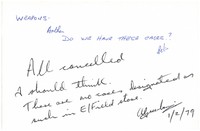 WEAPONS.
Do WE HAVE THESE CASES?
All cancelled
I should think.
These are no cases designated as
such in E/Field store.
1/2/79